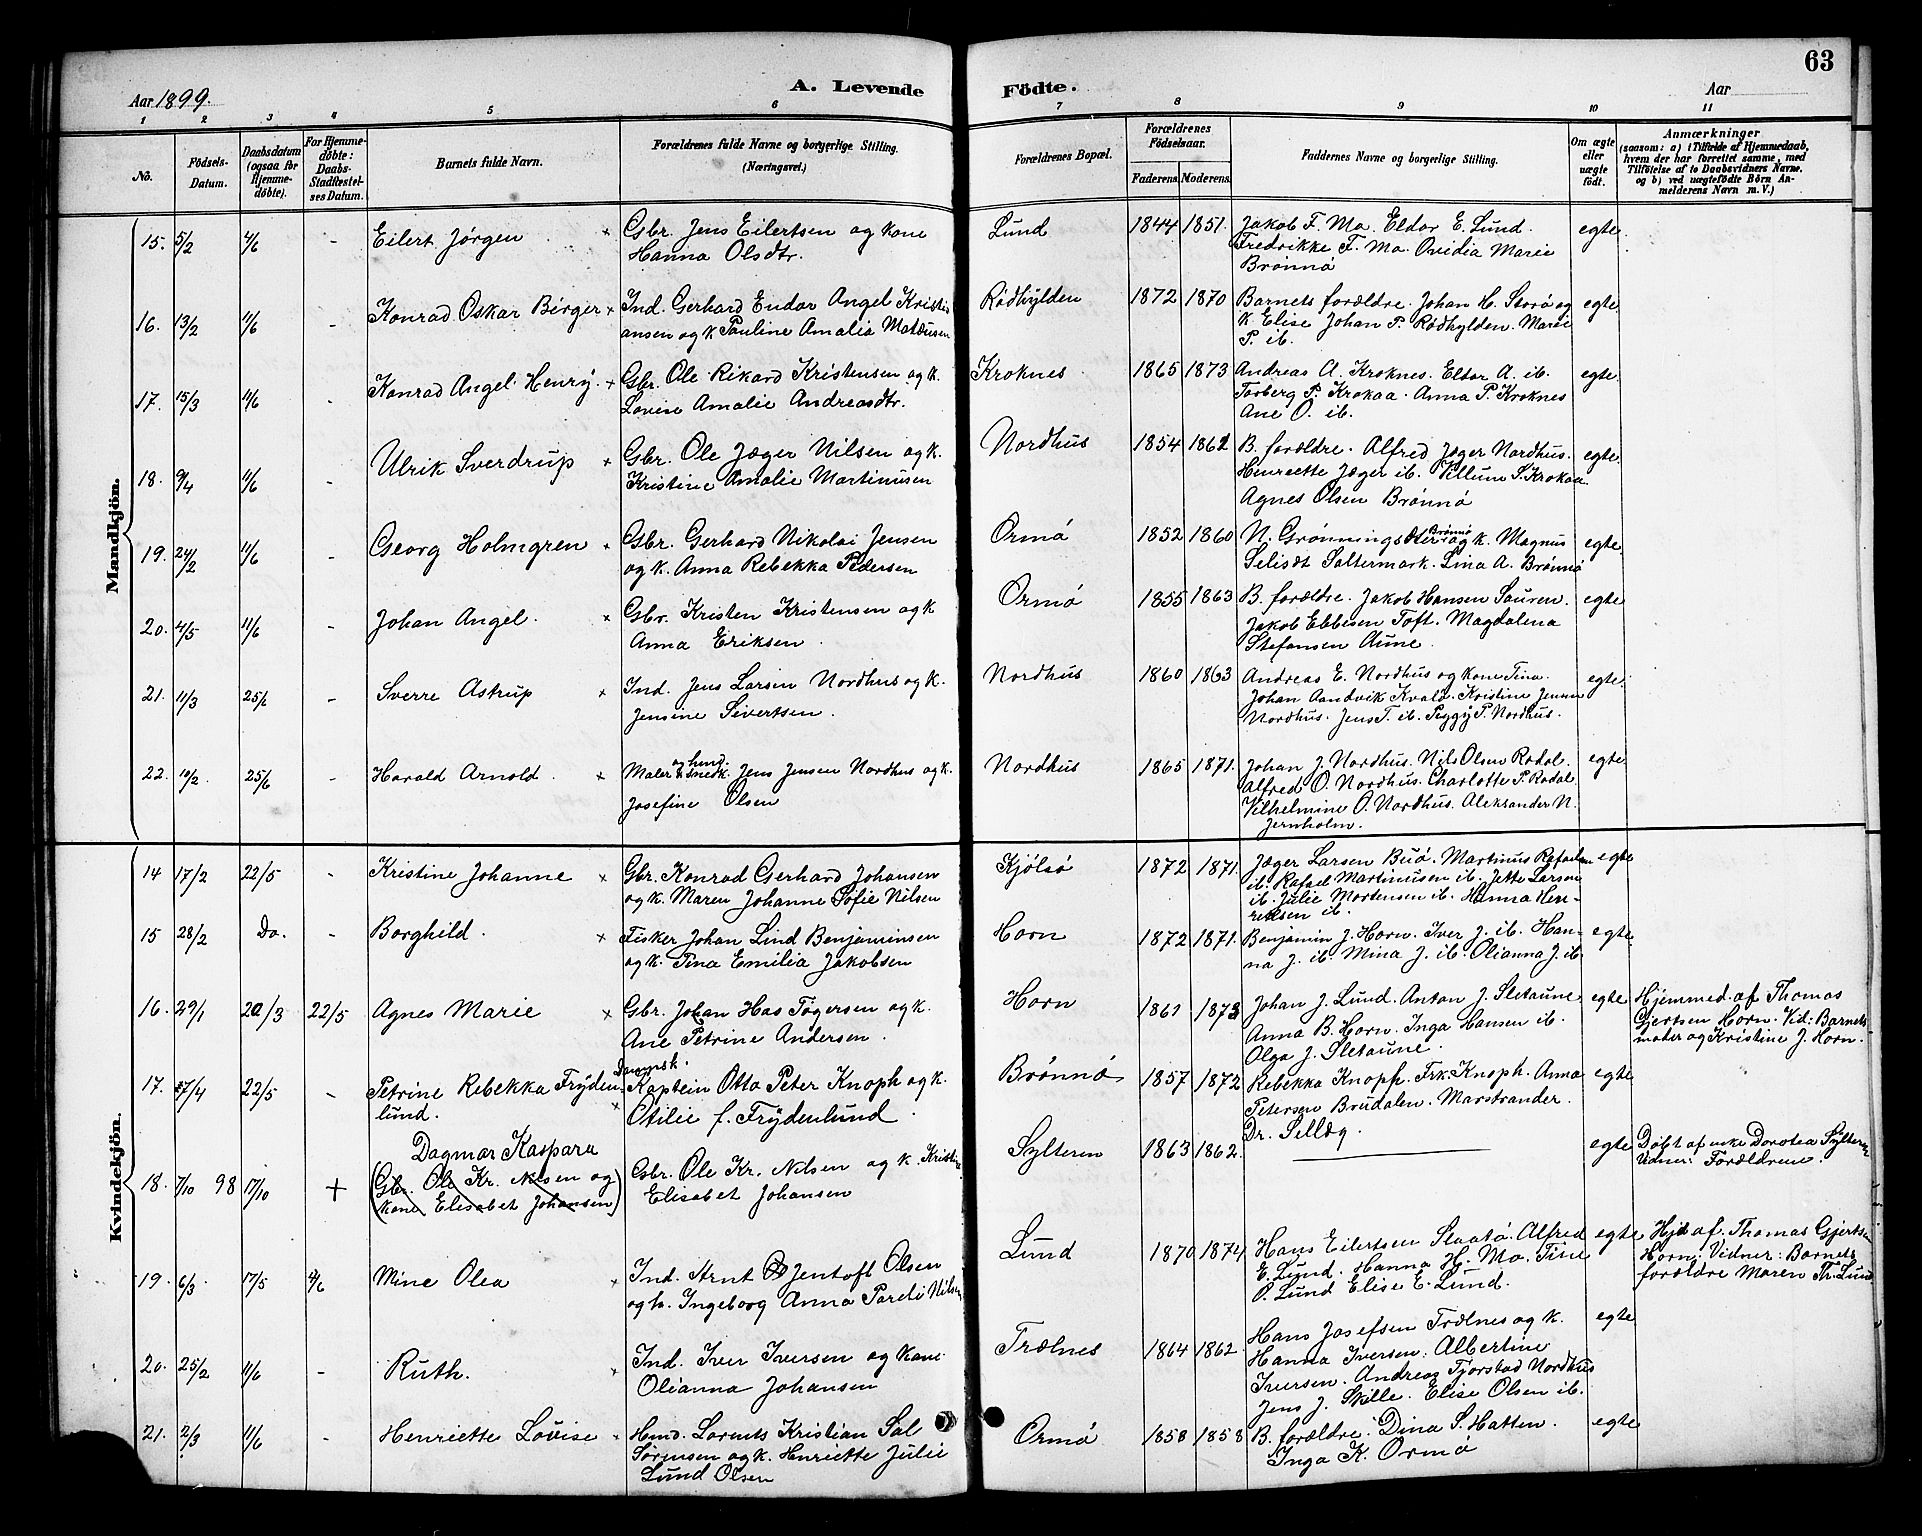 Aar 1899.
A. Levende
Födte.
Aar
63
1 2 3 4 5 6 7 8 9 10 11
No.
Födsels-
Datum.
Daabsdatum
(ogsaa for
Hjemme-
döbte).
For Hjemme-
döbte:
Daabs-
Stadfæstel-
ses Datum.
Barnets fulde Navn.
Forældrenes fulde Navne og borgerlige Stilling.
(Næringsvei.)
Forældrenes Bopæl.
Forældrenes
Födselsaar.
Faderens. Moderens.
Faddernes Navne og borgerlige Stilling.
Om ægte
eller
uægte
födt.
Anmærkninger
(saasom: a) i Tilfælde af Hjemmedaab,
hvem der har forrettet samme, med
Tilföielse af to Daabsvidners Navne,
og b) ved uægtefödte Börn An-
melderens Navn m. V.)
Mandkjön.
15. 5/2 4/6 - Eilert Jørgen × Gbr. Jens Eilertsen og kone
Hanna Olsdtr.
Lund 1844 1851. Jakob F. Mo. Eldor E. Lund. egte
Fredrikke F. Mo. Ovidia Marie
Brønnø
16. 13/2 11/6 - Konrad Oskar Birger × Ind. Gerhard Endor Angel Kristi
ansen og k Pauline Amalia Mateusen
Rødhylden 1872 1870 Barnets forældre. Johan H. Storø og egte
k. Elise Johan P. Rødhylden. Marie
P. ib.
17. 15/3 11/6 - Konrad Angel Henry. × Gbr. Ole Rikard Kristensen og k.
Lovise Amalie Andreasdtr.
Kroknes 1865 1873 Andreas A. Kroknes. Eldor A. ib. egte
Torberg P. Krokaa. Anna P. Kroknes
Ane O. ib.
18. 9/4 11/6 - Ulrik Sverdrup × Gbr. Ole Jæger Nilsen og k.
Kristine Amalie Martinusen
Nordhus 1854 1861 B. forældre. Alfred Jæger Nordhus. egte
Henriette Jæger ib. Villum S. Krokaa
Agnes Olsen Brønnø
19. 24/2 11/6 - Georg Holmgren × Gbr. Gerhard Nikolai Jensen
og k. Anna Rebekka Pedersen
Ormø 1852 1860 N. Grønningsæter Brønnø og k. Magnus egte
Saltermark. Lina A. Brønnø
20. 4/5 11/6 - Johan Angel. × Gbr. Kristen Kristensen og k
Anna Eriksen.
Ormø 1855 1863 B. forældre. Jakob Hansen Sauren. egte
Jakob Ebbesen Toft. Magdalena
Stefansen Aune.
21. 11/3 25/6 - Sverre Astrup × Ind. Jens Larsen Nordhus og k.
Jensine Sivertsen.
Nordhus 1860 1863 Andreas E. Nordhus og kone Tina. egte
Johan Aandvik Kvalø. Kristine Jensen
Nordhus. Jens T. ib. Peggy P. Nordhus.
22. 10/2 25/6 - Harald Arnold. × Maler Jens Jensen Nordhus og k.
Josefine Olsen
Nordhus 1865 1871. Johan J. Nordhus. Nils Olsen Rodal. egte
Alfred O. Nordhus. Charlotte P. Rodal
Vilhelmine O. Nordhus. Aleksander N.
Jernholm.
Kvindekjön.
14 17/2 22/5 - Kristine Johanne × Gbr. Konrad Gerhard Johansen
og k. Maren Johanne Sofie Nilsen
Kjølsø 1872 1871. Jæger Larsen Buø. Martinus Rafaelsen egte
ib. Rafael Martinusen ib. Jette Larsen
ib. Julie Mortensen ib. Hanna Hen-
reksen ib.
15 28/2 Do. - Borghild. × Fisker Johan Lind Benjaminsen
og k. Tina Emilia Jakobsen
Horn 1872 1871. Benjamin J. Horn. Iver J. ib. Han- egte
na J. ib. Mina J. ib. Olianna J. ib.
16. 29/1 20/3 22/5 Agnes Marie × Gbr. Johan Has Tøgersen og k.
Ane Petrine Andersen.
Horn 1861 1873 Johan J. Lund. Anton J. Sletaune egte Hjemmed. af Thomas
Anna B. Horn. Inga Hansen ib. Gjertsen Horn. Vid: Barnets
Olga J. Sletaune. moder og Kristine J. Horn.
17. 7/4 22/5 - Petrine Rebekka Fryden- Kaptein Otto Peter Knoph og k.
lund. × Otilie f. Frydenlund.
Brønnø 1857 1872 Rebekka Knoph. Frk. Knoph. Anna egte
Petersen Brudalen. Marstrander.
Dr. Selleg.
Dagmar Kaspara
18. 7/10 98 17/10 + (Gbr. Ole Kr. Nilsen og
kone Elisabet Johansen) Gbr. Ole Kr. Nilsen og k. Kristine
Elisabet Johansen
Sylteren 1863 1862. egte Døbt af enke Dorotea Sylteren
Vidner: Forældrene.
19. 6/3. 17/5 4/6 Mine Olea × Ind. Arnt Jentoft Olsen
og k. Ingeborg Anna Pareli Nilsen
Lund 1870 1874 Hans Eilertsen Slaatø. Alfred egte Hjd af. Thomas Gjertsen
E. Lund. Hanna H. Mo. Tine Horn: Vidner: Barnets
O. Lund Elise E. Lund. forældre Maren Tr. Lund
20. 25/2 11/6 - Ruth. × Ind. Iver Iversen og kone
Olianna Johansen
Trælnes 1864 1862. Hans Josefsen Trælnes og k. egte
Hanna Iversen. Albertine
Iversen. Andreas Tjorstad Nordhus
Jens J. Skille. Elise Olsen ib.
21. 2/3 11/6 - Henriette Lovise × Hmd. Lorents Kristian Sal
Sørensen og k. Henriette Julie
Lund Olsen
Ormø 1858 1858 B. forældre. Dina S. Hatten. egte
Inga K. Ormø